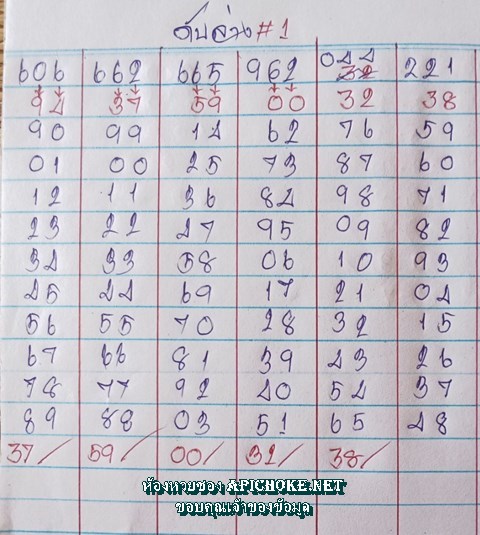 ดับล่าง #1
606 662 665 962 044 221
94 37 59 00 32 38
90 99 14 62 76 59
01 00 25 73 87 60
12 11 36 84 98 71
23 22 47 95 09 82
34 33 58 06 10 93
45 44 69 17 21 04
56 55 70 28 32 15
67 66 81 39 43 26
78 77 92 40 54 37
89 88 03 51 65 48
37/ 59/ 00/ 32/ 38/
ห้องหวยซอง APICHOKE.NET
ขอบคุณเจ้าของข้อมูล